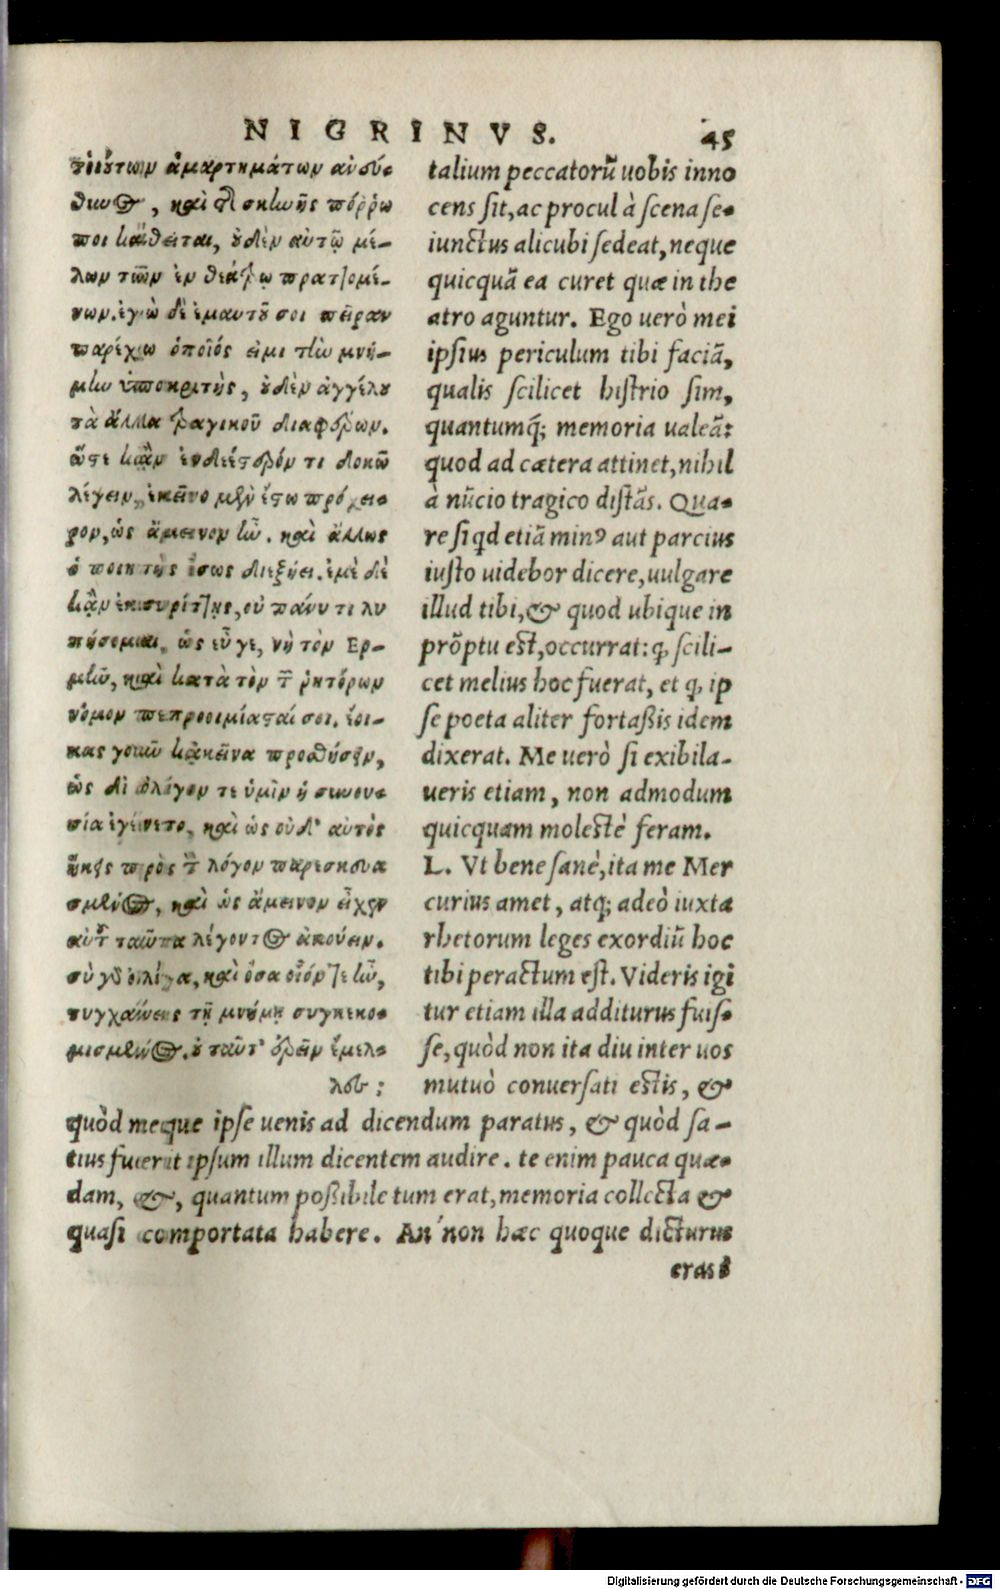 NIGRINVS. 45
τοιούτων ἁμαρτημάτων ἀνεύ-
θυνος, καὶ τῆς σκηνῆς πόῤῥω
ποι κάθηται, οὐδὲν αὐτῷ μέ-
λων τῶν ἐν θεάτρῳ πραττομέ-
νων. ἐγὼ δὲ ἐμαυτοῦ σοι πεῖραν
παρέχω ὁποῖός εἰμι τὴν μνή-
μην ὑποκριτὴς, οὐδὲν ἀγγέλου
τὰ ἄλλα τραγικοῦ διαφέρων.
ὥστε κἂν ἐνδεέστερόν τι δοκῶ
λέγειν, ἐκεῖνο μὲν ἔστω πρόχει-
ρον, ὡς ἄμεινον ἦν. καὶ ἄλλως
ὁ ποιητὴς ἴσως διεξῄει. ἐμὲ δὲ
κἂν ἐκσυρίττῃς, οὐ πάνυ τι λυ
πήσομαι. ὡς εὖ γε, νὴ τὸν Ερ-
μῆν, καὶ κατὰ τὸν τῶν ῥητόρων
νόμον πεπροοιμίασταί σοι. ἔοι-
κας γοῦν κἀκεῖνα προσθήσειν,
ὡς δι ὀλίγον τε ὑμῖν ἡ συνου-
σία ἐγένετο, καὶ ὡς οὐδ' αὐτὸς
ἧκες πρὸς τὸν λόγον παρεσκευα
σμένος, καὶ ὡς ἄμεινον εἶχεν
αὐτοῦ ταῦτα λέγοντος ἀκούειν.
σὺ γὰρ ὀλίγα, καὶ ὅσα οἷόν τε ἦν,
τυγχάνεις τῇ μνήμῃ συγκεκο-
μισμένος. οὐ ταῦτ' ἐρεῖν ἔμελ-
λες;
talium peccatorũ uobis inno
cens sit, ac procul à scena se-
iunctus alicubi sedeat, neque
quicquã ea curet quæ in the
atro aguntur. Ego uerò mei
ipsius periculum tibi faciã,
qualis scilicet histrio sim,
quantumq́; memoria ualeã:
quod ad cætera attinet, nihil
à nũcio tragico distãs. Qua-
re si qd etiã minꝰ aut parcius
iusto uidebor dicere, uulgare
illud tibi, & quod ubique in
prõptu est, occurrat: ꝙ scili-
cet melius hoc fuerat, et ꝙ ip
se poeta aliter fortaßis idem
dixerat. Me uerò si exibila-
ueris etiam, non admodum
quicquam molestè feram.
L. Vt bene sanè, ita me Mer
curius amet, atq; adeò iuxta
rhetorum leges exordiũ hoc
tibi peractum est. Videris igi
tur etiam illa additurus fuis-
se, quòd non ita diu inter uos
mutuò conuersati estis, &
quòd meque ipse uenis ad dicendum paratus, & quòd sa-
tius fuerit ipsum illum dicentem audire. te enim pauca quæ-
dam, &, quantum poßibile tum erat, memoria collecta &
quasi comportata habere. An non hæc quoque dicturus
eras?
Digitalisierung gefördert durch die Deutsche Forschungsgemeinschaft - DFG